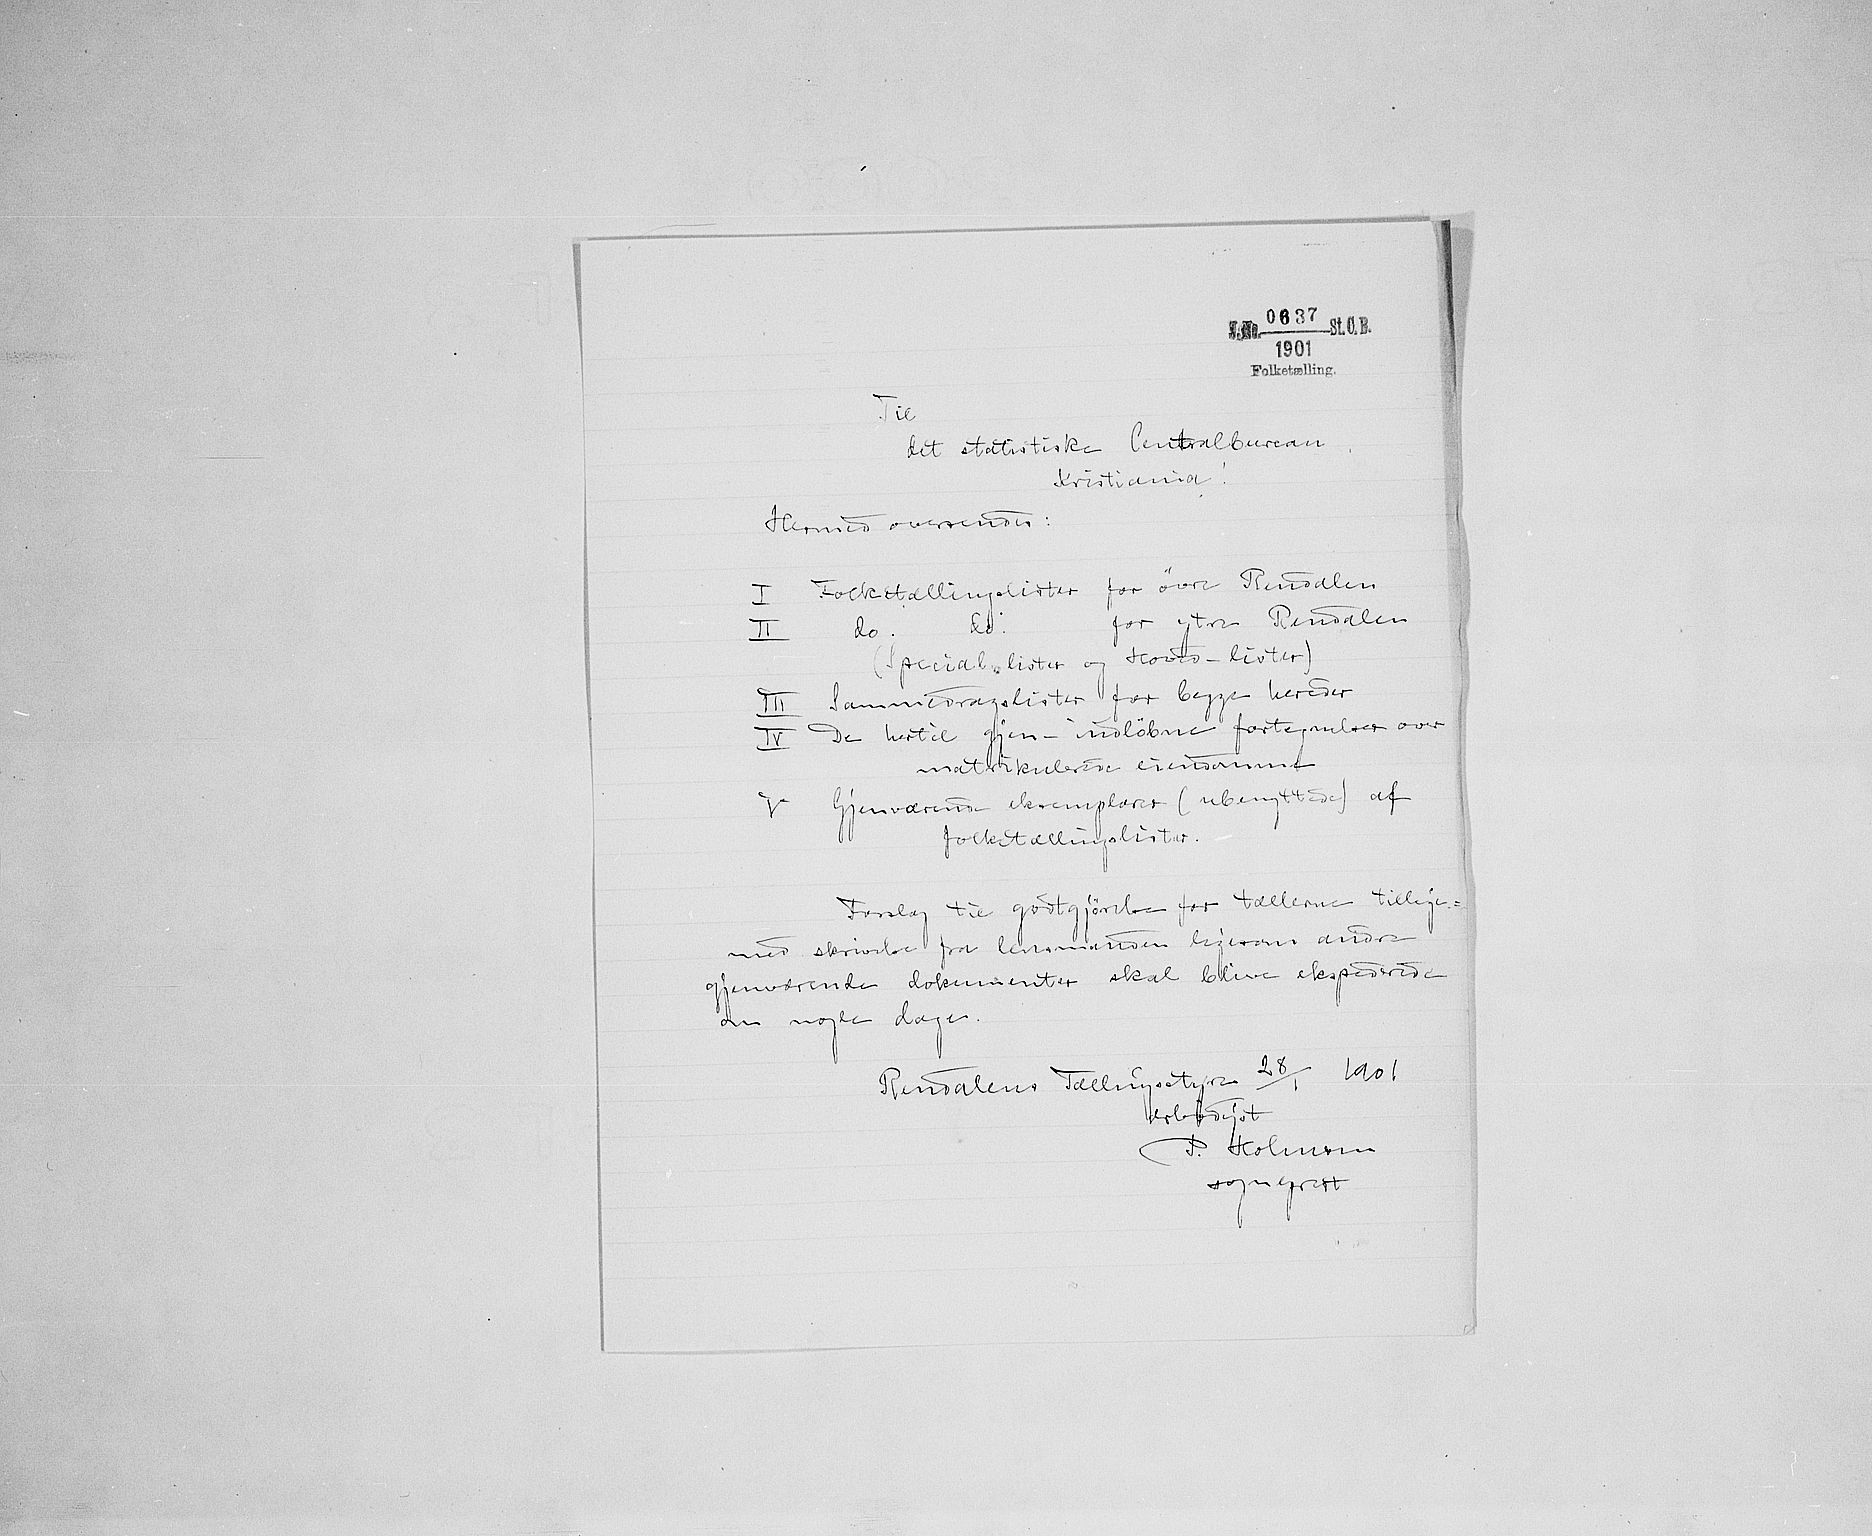 J.No. 0637 St.C.B.
1901
Folketælling.
Til
det statistiske Centralbureau,
Kristiania!
Hermed oversendes:
I Folketællingslister for övre Rendalen
II do. do. for ytre Rendalen
(Special-lister og Hoved-lister)
III Sammendragslister for begge hereder
IV De hertil gjen-indlöbne fortegnelser over
matrikulerede eiendomme
V Gjenværende eksemplarer (ubenyttede) af
folketællingslister.
Forslag til godtgjörelse for tællerne tillige=
med skrivelse fra lensmanden ligesom andre
gjenværende dokumenter skal blive ekspederede
om nogle dage.
Rendalens Tællingsstyre 28/1 1901
ærbödigst
P. Holmsen
sogneprest